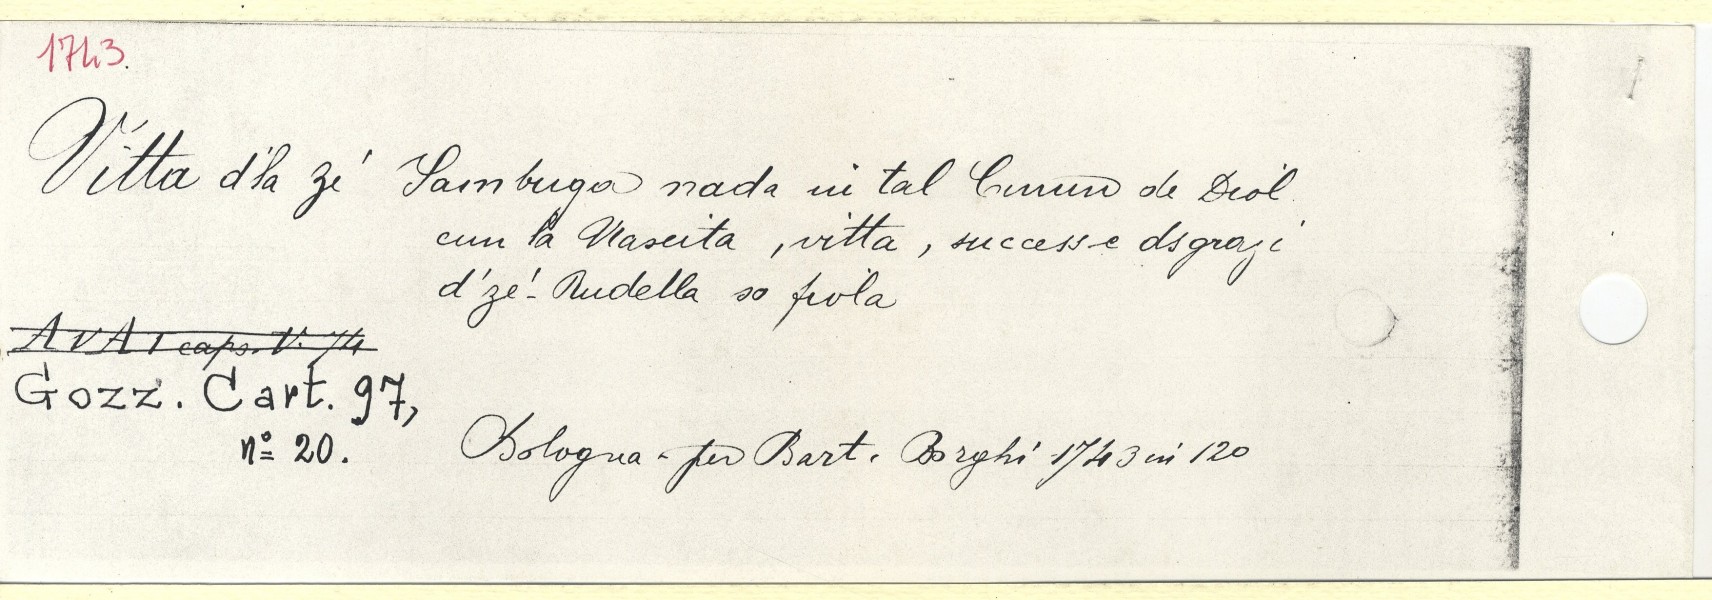 1743.
Vitta d'la zé Sambuga nada in tal Cmun de Diol
cun la Nascita, vitta, success e dsgrazi
d'zé Rudella so fiola
A V A I caps. V. 74
Gozz. Cart. 97,
nº 20.
Bologna - per Bart. Borghi 1743 in 12º